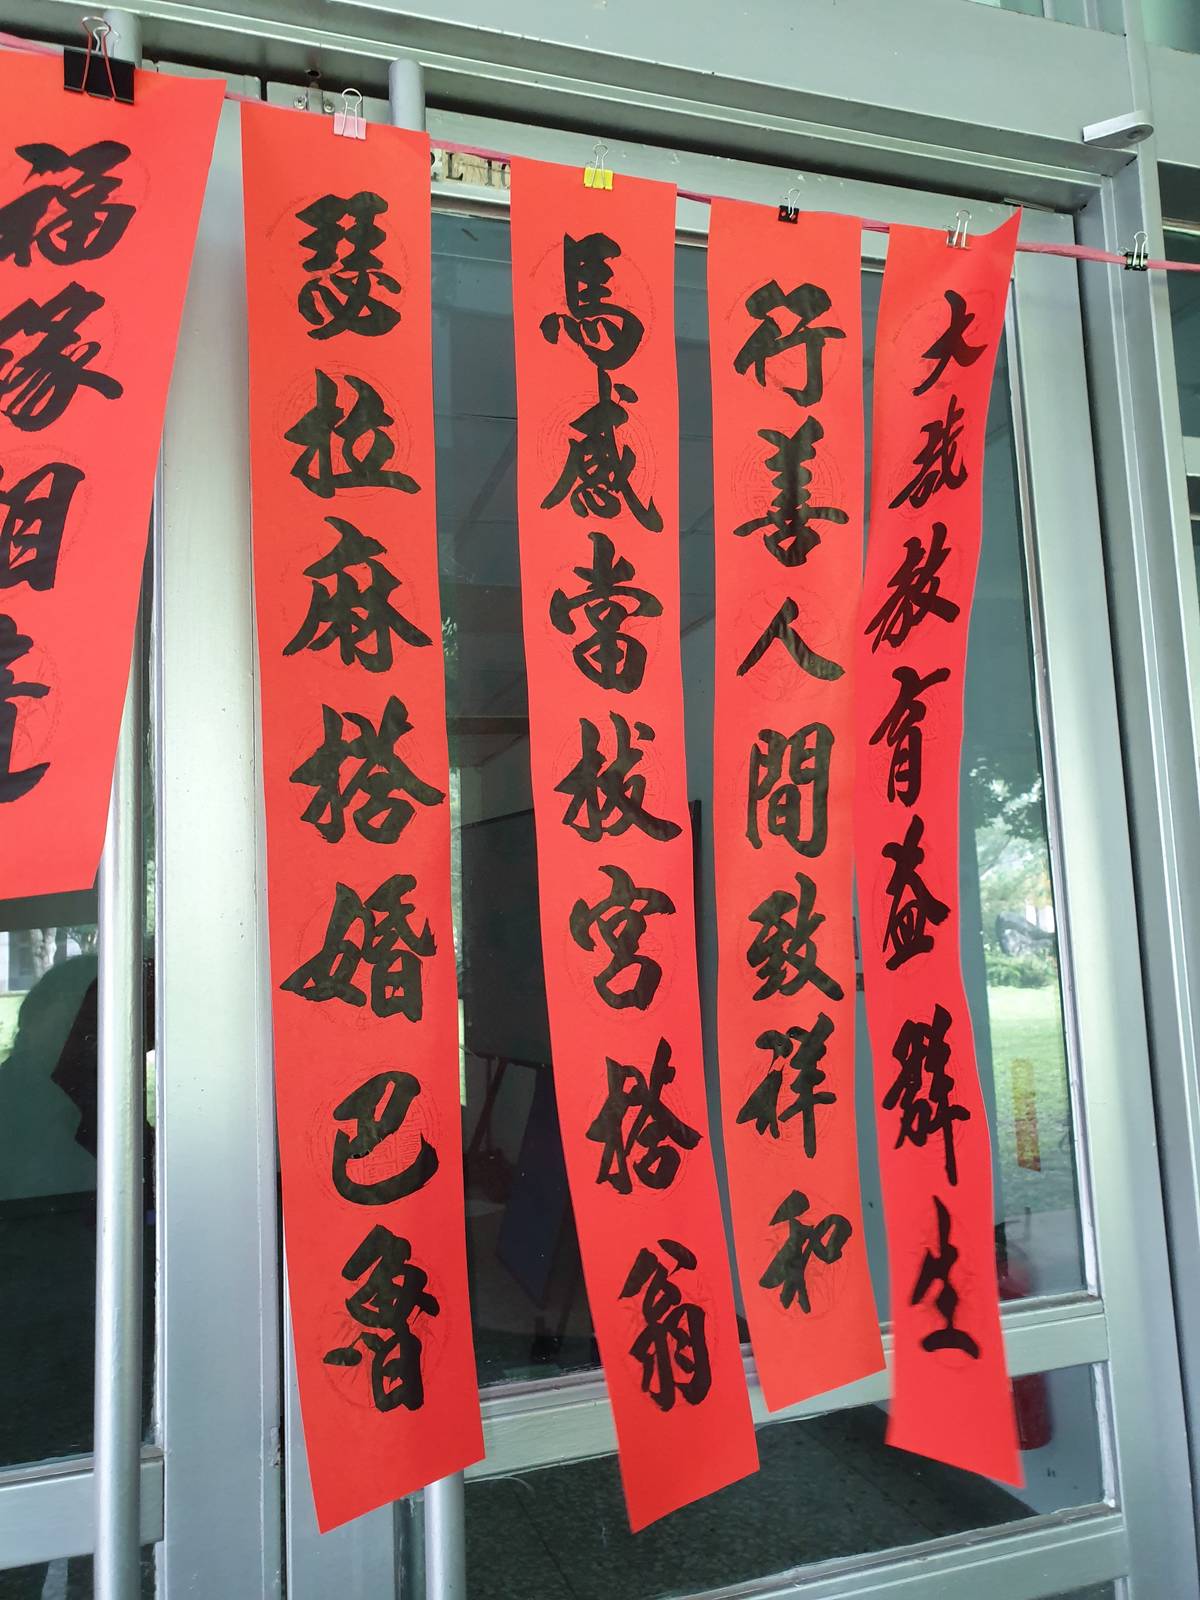 大哉教育益群生
行善人間致祥和
馬感常拔宮搭翁
瑟拉麻搭婚巴魯
福緣相